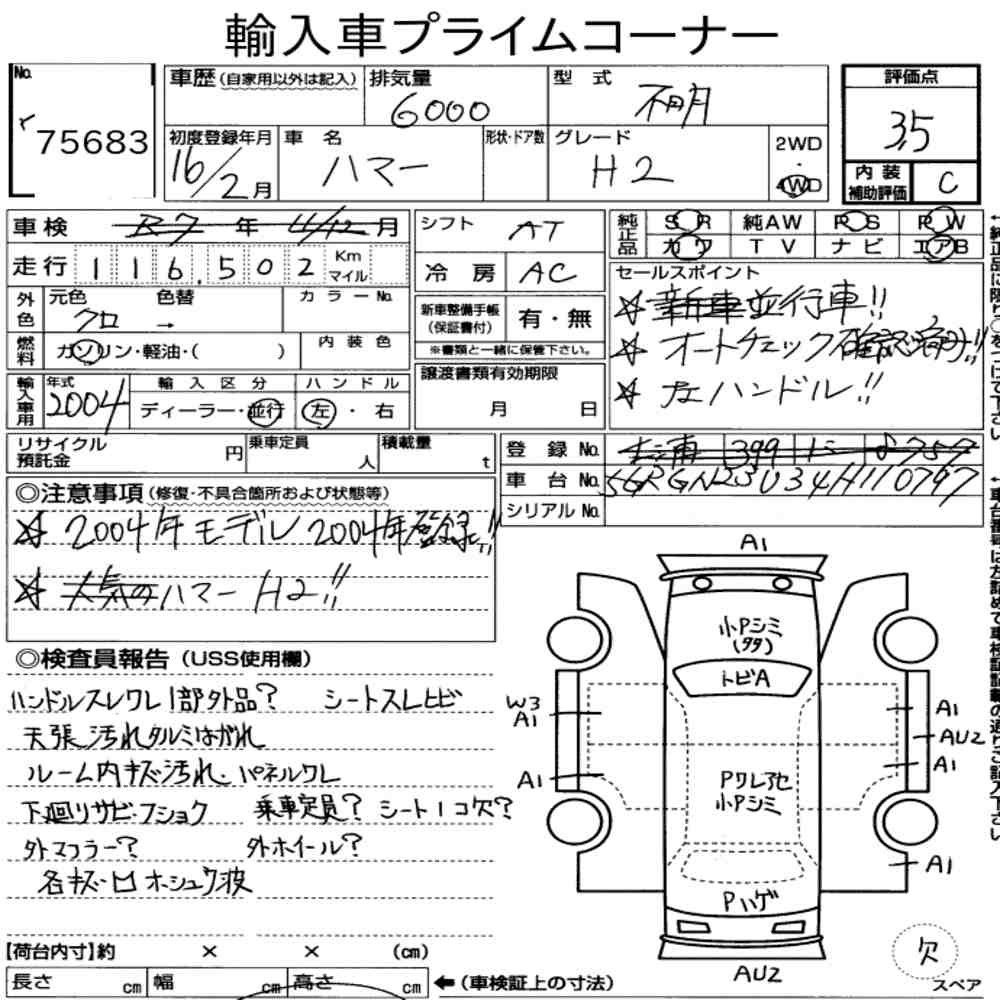 輸入車プライムコーナー
No.
75683
車歴 (自家用以外は記入)
排気量
6000
型式
不明
評価点
3.5
初度登録年月
16/2月
車名
ハマー
形状・ドア数
グレード
H2
2WD
・
4WD
内装
補助評価
C
車検 R7年11/12月
シフト AT
純正品
SR 純AW PS PW
カワ TV ナビ エアB
走行 116,502 Km マイル
冷房 AC
セールスポイント
☆新車並行車!!
☆オートチェック確認済み!!
☆左ハンドル!!
外色 元色 色替 カラーNo.
クロ →
新車整備手帳
(保証書付)
有・無
※書類と一緒に保管下さい。
燃料 ガソリン・軽油・( )
内装色
輸入車用
年式 2004
輸入区分
ディーラー・並行
ハンドル
左・右
譲渡書類有効期限
月 日
リサイクル
預託金
円
乗車定員
人
積載量
t
登録No.
399
車台No. 5GRGN23U34H110797
シリアルNo.
◎注意事項 (修復・不具合箇所および状態等)
☆2004年モデル 2004年登録!!
☆人気のハマー H2!!
◎検査員報告 (USS使用欄)
ハンドルスレワレ 1部外品? シートスレヒビ
天張汚れタルミはがれ
ルーム内キズ汚れ・パネルワレ
下廻りサビ・フショク 乗車定員? シート1コ欠?
外マフラー? 外ホイール?
各キズ凹 ホシュウ波
A1
小Pシミ
(タタ)
トビA
W3
A1
A1
A1
AU2
A1
Pワレアセ
小Pシミ
A1
Pハゲ
AU2
欠
スペア
【荷台内寸】約 × × (cm)
長さ cm 幅 cm 高さ cm
←(車検証上の寸法)